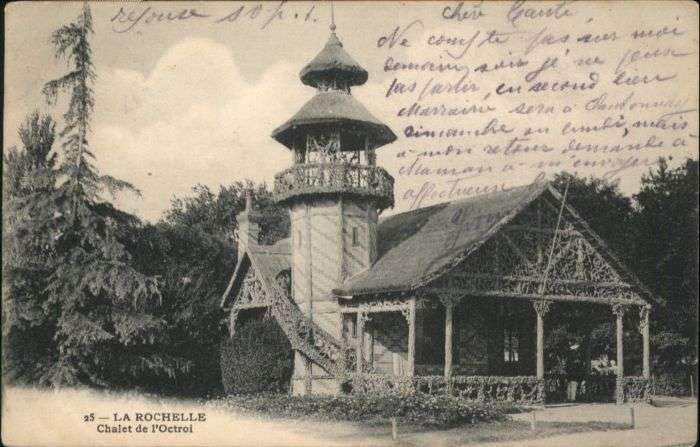 réponse S.v.p.
chère Tante
Ne compte pas sur moi
demain soir je ne peux
pas partir, en second lieu
Marraine sera à
dimanche ou lundi, mais
à mon retour demande à
Maman à m'envoyer
affectueuse
25 — LA ROCHELLE
Chalet de l'Octroi